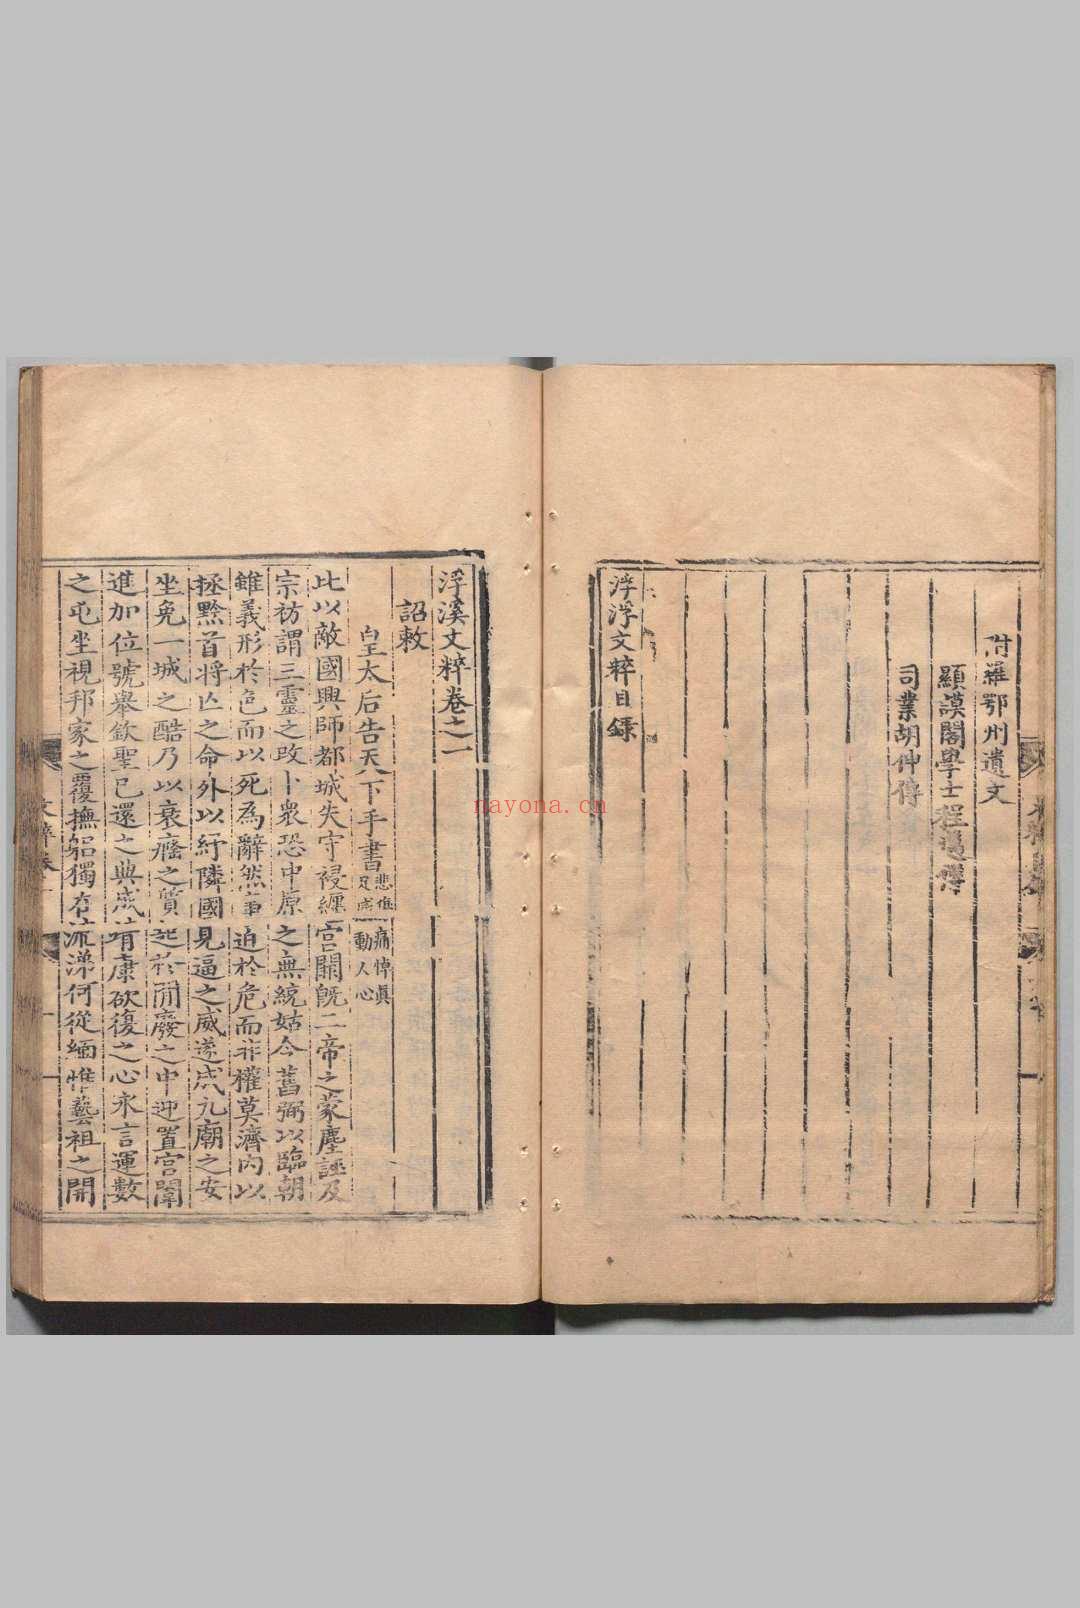 附羅鄂州遺文
顯謨閣學士程邁傳
司業胡伸傳
浮浮文粹目録
浮溪文粹卷之一
詔敕
皇太后告天下手書
悲傷痛悼真
足感動人心
比以敵國興師都城失守祲纒宮闕既二帝之蒙塵誣及
宗祊謂三靈之改卜衆恐中原之無統姑令舊弼以臨朝
雖義形於色而以死為辭然事迫於危而非權莫濟内以
拯黔首將亾之命外以紓隣國見逼之威遂成九廟之安
坐免一城之酷乃以衰癃之質起於閒廢之中迎置宮闈
進加位號舉欽聖已還之典成靖康欲復之心永言運數
之屯坐視邦家之覆撫躬獨有流涕何從緬惟藝祖之開
nayona.cn